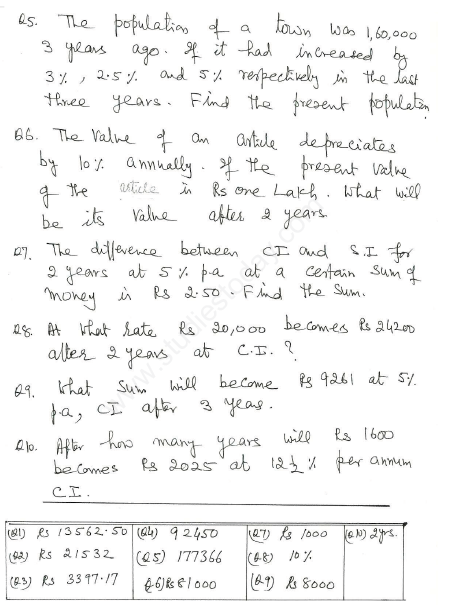 Q5. The population of a town was 1,60,000
3 years ago. If it had increased by
3%, 2.5% and 5% respectively in the last
three years. Find the present population
Q6. The Value of an article depreciates
by 10% annually. If the present value
of the article is Rs one Lakh. What will
be its Value after 2 years.
Q7. The difference between CI and S.I for
2 years at 5% p.a at a certain sum of
money is Rs 2.50. Find the Sum.
Q8. At what rate Rs 20,000 becomes Rs 24200
after 2 years at C.I.?
Q9. What Sum will become Rs 9261 at 5%
p.a, CI after 3 years.
Q10. After how many years will Rs 1600
becomes Rs 2025 at 12½% per annum
C.I.
(Q1) Rs 13562.50 (Q4) 92450 (Q7) Rs 1000 (Q10) 2yrs.
(Q2) Rs 21532 (Q5) 177366 (Q8) 10%
(Q3) Rs 3397.17 (Q6) Rs 81000 (Q9) Rs 8000
www.studiestoday.com